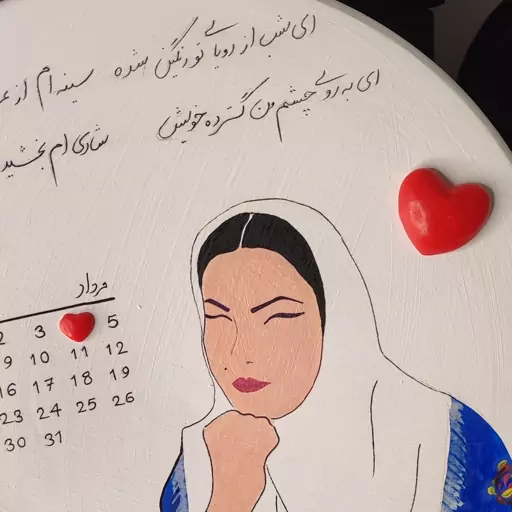 ای شب از رویای تو رنگین شده سینه ام از
ای به روی چشم من گسترده خویش
شادی ام بخشید
مرداد
2 3 5
9 10 11 12
16 17 18 19
23 24 25 26
30 31